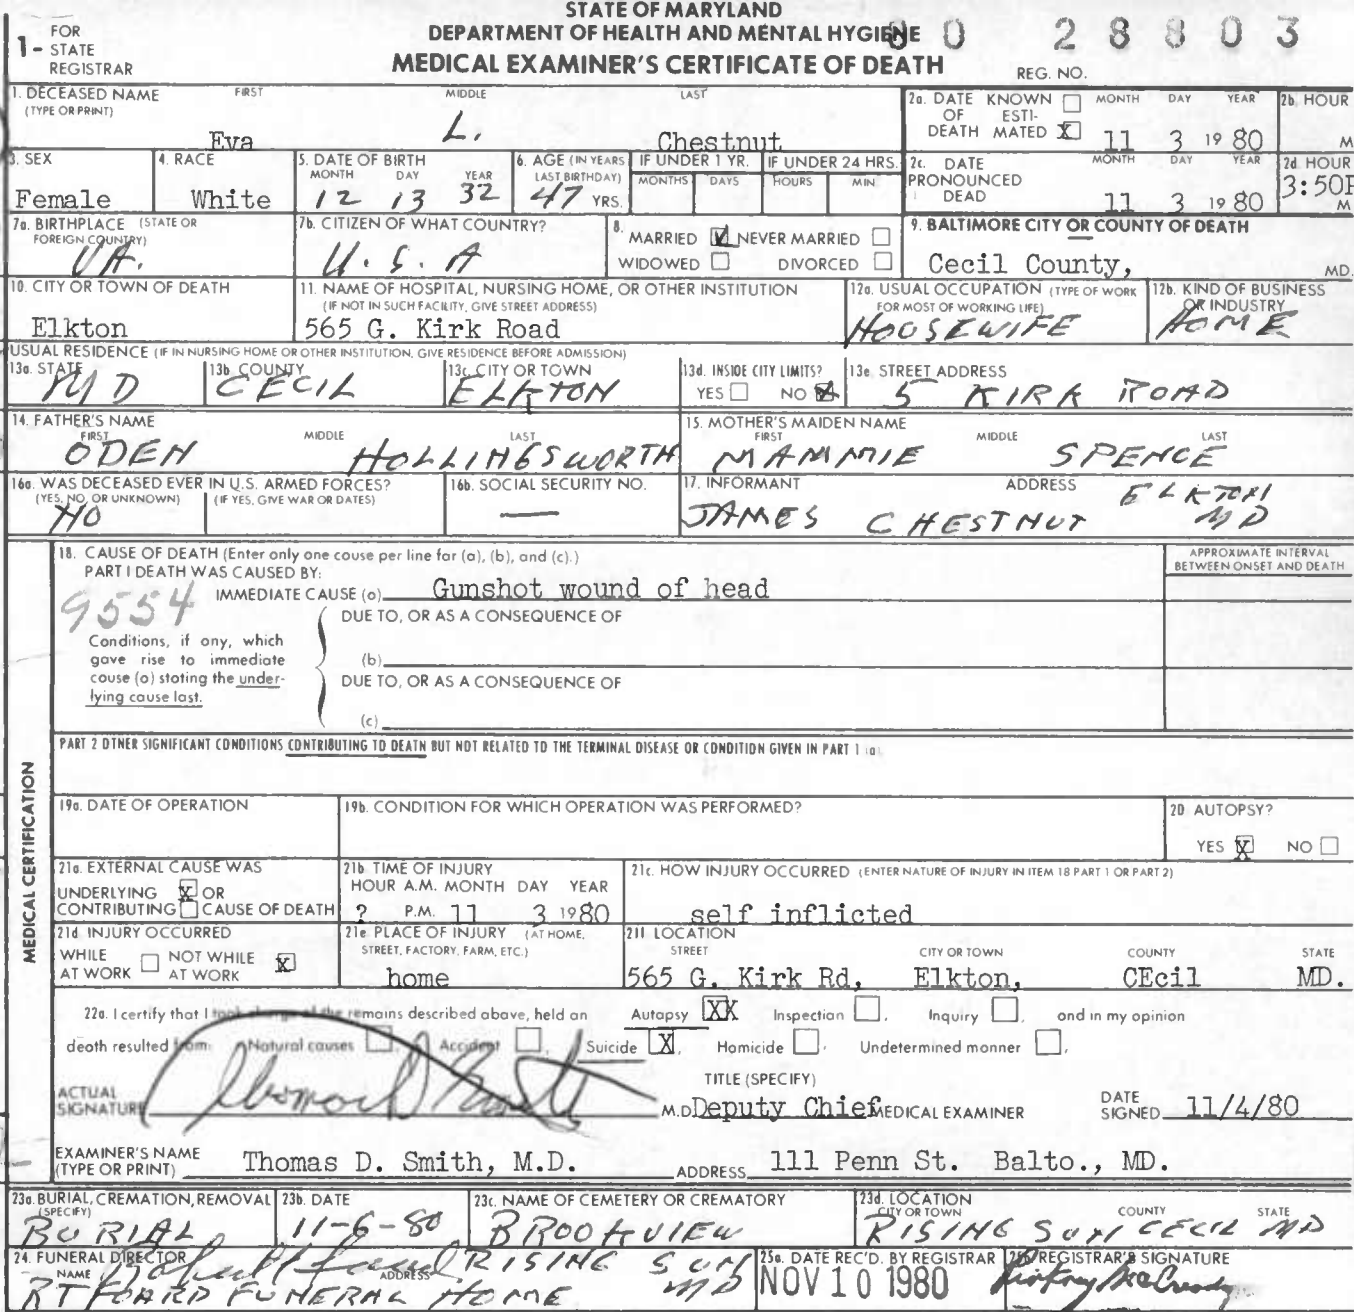 STATE OF MARYLAND
DEPARTMENT OF HEALTH AND MENTAL HYGIENE
MEDICAL EXAMINER'S CERTIFICATE OF DEATH
1- FOR STATE REGISTRAR
REG. NO. 80 28803
1. DECEASED NAME (TYPE OR PRINT) FIRST MIDDLE LAST
Eva L. Chestnut
2a. DATE OF DEATH KNOWN ☐ ESTIMATED ☒ MONTH DAY YEAR 11 3 1980
2b. HOUR M
3. SEX Female
4. RACE White
5. DATE OF BIRTH MONTH DAY YEAR 12 13 32
6. AGE (IN YEARS LAST BIRTHDAY) 47 YRS.
IF UNDER 1 YR. MONTHS DAYS
IF UNDER 24 HRS. HOURS MIN
2c. DATE PRONOUNCED DEAD MONTH DAY YEAR 11 3 1980
2d HOUR 3:50P M
7a. BIRTHPLACE (STATE OR FOREIGN COUNTRY) VA.
7b. CITIZEN OF WHAT COUNTRY? U.S.A
8. MARRIED ☑ NEVER MARRIED ☐ WIDOWED ☐ DIVORCED ☐
9. BALTIMORE CITY OR COUNTY OF DEATH Cecil County, MD.
10. CITY OR TOWN OF DEATH Elkton
11. NAME OF HOSPITAL, NURSING HOME, OR OTHER INSTITUTION (IF NOT IN SUCH FACILITY, GIVE STREET ADDRESS) 565 G. Kirk Road
12a. USUAL OCCUPATION (TYPE OF WORK FOR MOST OF WORKING LIFE) HOUSEWIFE
12b. KIND OF BUSINESS OR INDUSTRY HOME
USUAL RESIDENCE (IF IN NURSING HOME OR OTHER INSTITUTION, GIVE RESIDENCE BEFORE ADMISSION)
13a. STATE MD
13b. COUNTY CECIL
13c. CITY OR TOWN ELKTON
13d. INSIDE CITY LIMITS? YES ☐ NO ☒
13e. STREET ADDRESS 5 KIRK ROAD
14. FATHER'S NAME FIRST MIDDLE LAST
ODEN HOLLINGSWORTH
15. MOTHER'S MAIDEN NAME FIRST MIDDLE LAST
MAMMIE SPENCE
16a. WAS DECEASED EVER IN U.S. ARMED FORCES? (YES, NO, OR UNKNOWN) (IF YES, GIVE WAR OR DATES) NO
16b. SOCIAL SECURITY NO. —
17. INFORMANT ADDRESS
JAMES CHESTNUT ELKTON MD
MEDICAL CERTIFICATION
18. CAUSE OF DEATH (Enter only one cause per line for (a), (b), and (c).)
APPROXIMATE INTERVAL BETWEEN ONSET AND DEATH
PART I DEATH WAS CAUSED BY:
IMMEDIATE CAUSE (a) Gunshot wound of head
9554
DUE TO, OR AS A CONSEQUENCE OF
Conditions, if any, which gave rise to immediate cause (a) stating the underlying cause last.
(b)
DUE TO, OR AS A CONSEQUENCE OF
(c)
PART 2 OTHER SIGNIFICANT CONDITIONS CONTRIBUTING TO DEATH BUT NOT RELATED TO THE TERMINAL DISEASE OR CONDITION GIVEN IN PART 1 (a)
19a. DATE OF OPERATION
19b. CONDITION FOR WHICH OPERATION WAS PERFORMED?
20 AUTOPSY? YES ☒ NO ☐
21a. EXTERNAL CAUSE WAS UNDERLYING ☒ OR CONTRIBUTING ☐ CAUSE OF DEATH
21b TIME OF INJURY HOUR A.M. MONTH DAY YEAR
? P.M. 11 3 1980
21c. HOW INJURY OCCURRED (ENTER NATURE OF INJURY IN ITEM 18 PART 1 OR PART 2)
self inflicted
21d INJURY OCCURRED WHILE AT WORK ☐ NOT WHILE AT WORK ☒
21e PLACE OF INJURY (AT HOME, STREET, FACTORY, FARM, ETC.) home
21f LOCATION STREET CITY OR TOWN COUNTY STATE
565 G. Kirk Rd, Elkton, CEcil MD.
22a. I certify that I took charge of the remains described above, held an Autopsy ☒X Inspection ☐, Inquiry ☐, and in my opinion
death resulted from: Natural causes ☐, Accident ☐, Suicide ☒, Homicide ☐, Undetermined manner ☐,
ACTUAL SIGNATURE M.D.
TITLE (SPECIFY) Deputy Chief MEDICAL EXAMINER
DATE SIGNED 11/4/80
EXAMINER'S NAME (TYPE OR PRINT) Thomas D. Smith, M.D. ADDRESS 111 Penn St. Balto., MD.
23a. BURIAL, CREMATION, REMOVAL (SPECIFY) BURIAL
23b. DATE 11-6-80
23c. NAME OF CEMETERY OR CREMATORY BROOKVIEW
23d. LOCATION CITY OR TOWN COUNTY STATE
RISING SUN CECIL MD
24. FUNERAL DIRECTOR NAME ADDRESS
RISING SUN MD
RT FOARD FUNERAL HOME
25a. DATE REC'D. BY REGISTRAR NOV 10 1980
25b. REGISTRAR'S SIGNATURE